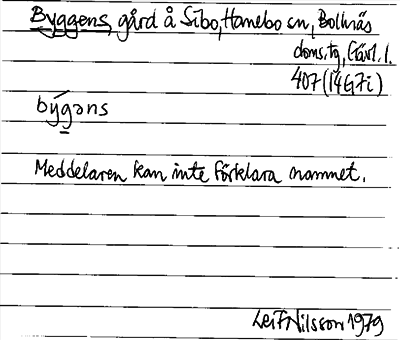 Byggens, gård å Sibo, Hanebo sn, Bollnäs
doms.tg, Gävl. l.
407 (14G7i)
býgəns
Meddelaren kan inte förklara namnet.
Leif Nilsson 1979